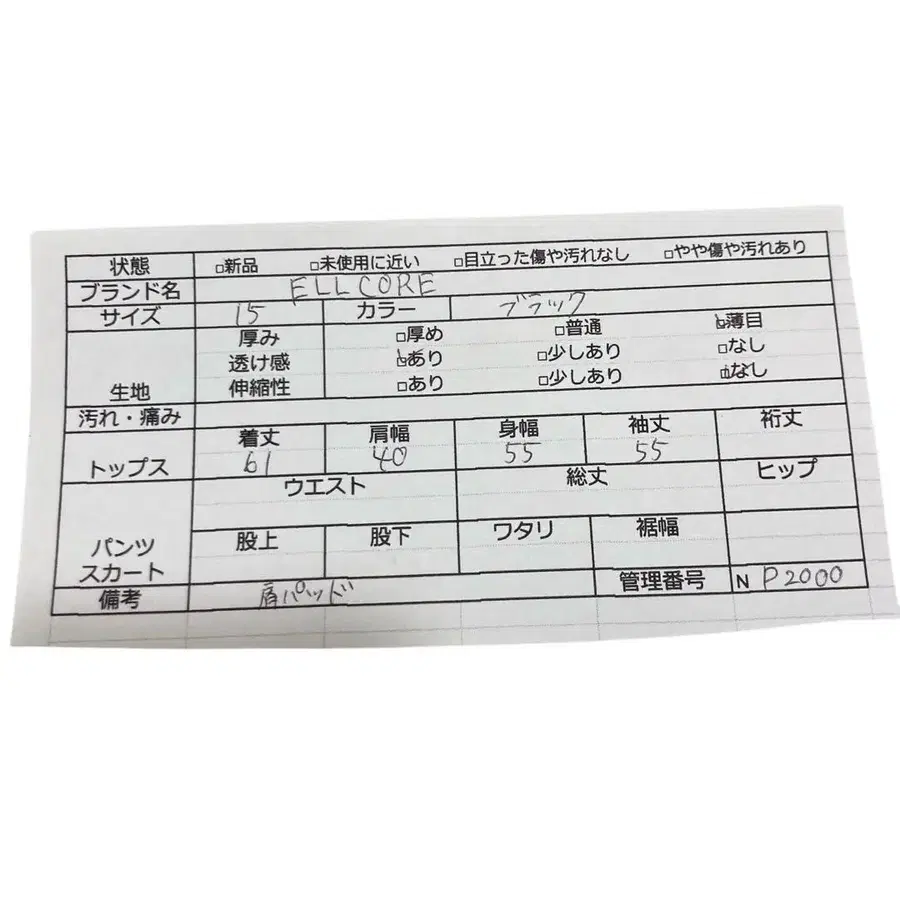 状態 □新品 □未使用に近い □目立った傷や汚れなし □やや傷や汚れあり
ブランド名 ELLCORE
サイズ 15 カラー ブラック
厚み □厚め □普通 ☑薄目
透け感 ☑あり □少しあり □なし
生地 伸縮性 □あり □少しあり ☑なし
汚れ・痛み
着丈 肩幅 身幅 袖丈 裄丈
トップス 61 40 55 55
ウエスト 総丈 ヒップ
股上 股下 ワタリ 裾幅
パンツ
スカート
備考 肩パッド 管理番号 N P2000